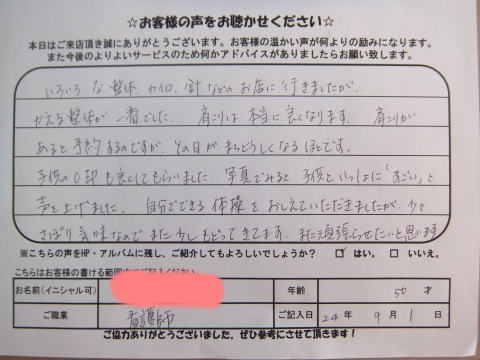 ☆お客様の声をお聴かせください☆
本日はご来店頂き誠にありがとうございます。お客様の温かい声が何よりの励みになります。
また今後のよりよいサービスのため何かアドバイスがありましたらお願い致します。
いろいろな整体、カイロ、針などのお店に行きましたが、
かえる整体が一番でした。 肩こりは本当に良くなります。 肩こりが
あると予約するのですが、その日がまちどうしくなるほどです。
子供のO脚も良くしてもらいました。写真でみると子供といっしょに「すごい」と
声を上げました。自分でできる体操をおしえていただきましたが、少々
さぼり気味なのでまた少しもどってきてます。また頑張らせたいと思います
※こちらの声をHP・アルバムに残し、ご紹介してもよろしいでしょうか? ☑ はい。 □ いいえ。
こちらはお客様の書ける範囲でご記入ください。
お名前(イニシャル可) 年齢 50 才
ご職業 看護師 ご記入日 24年 9月 1日
ご協力ありがとうございました。ぜひ参考にさせて頂きます!